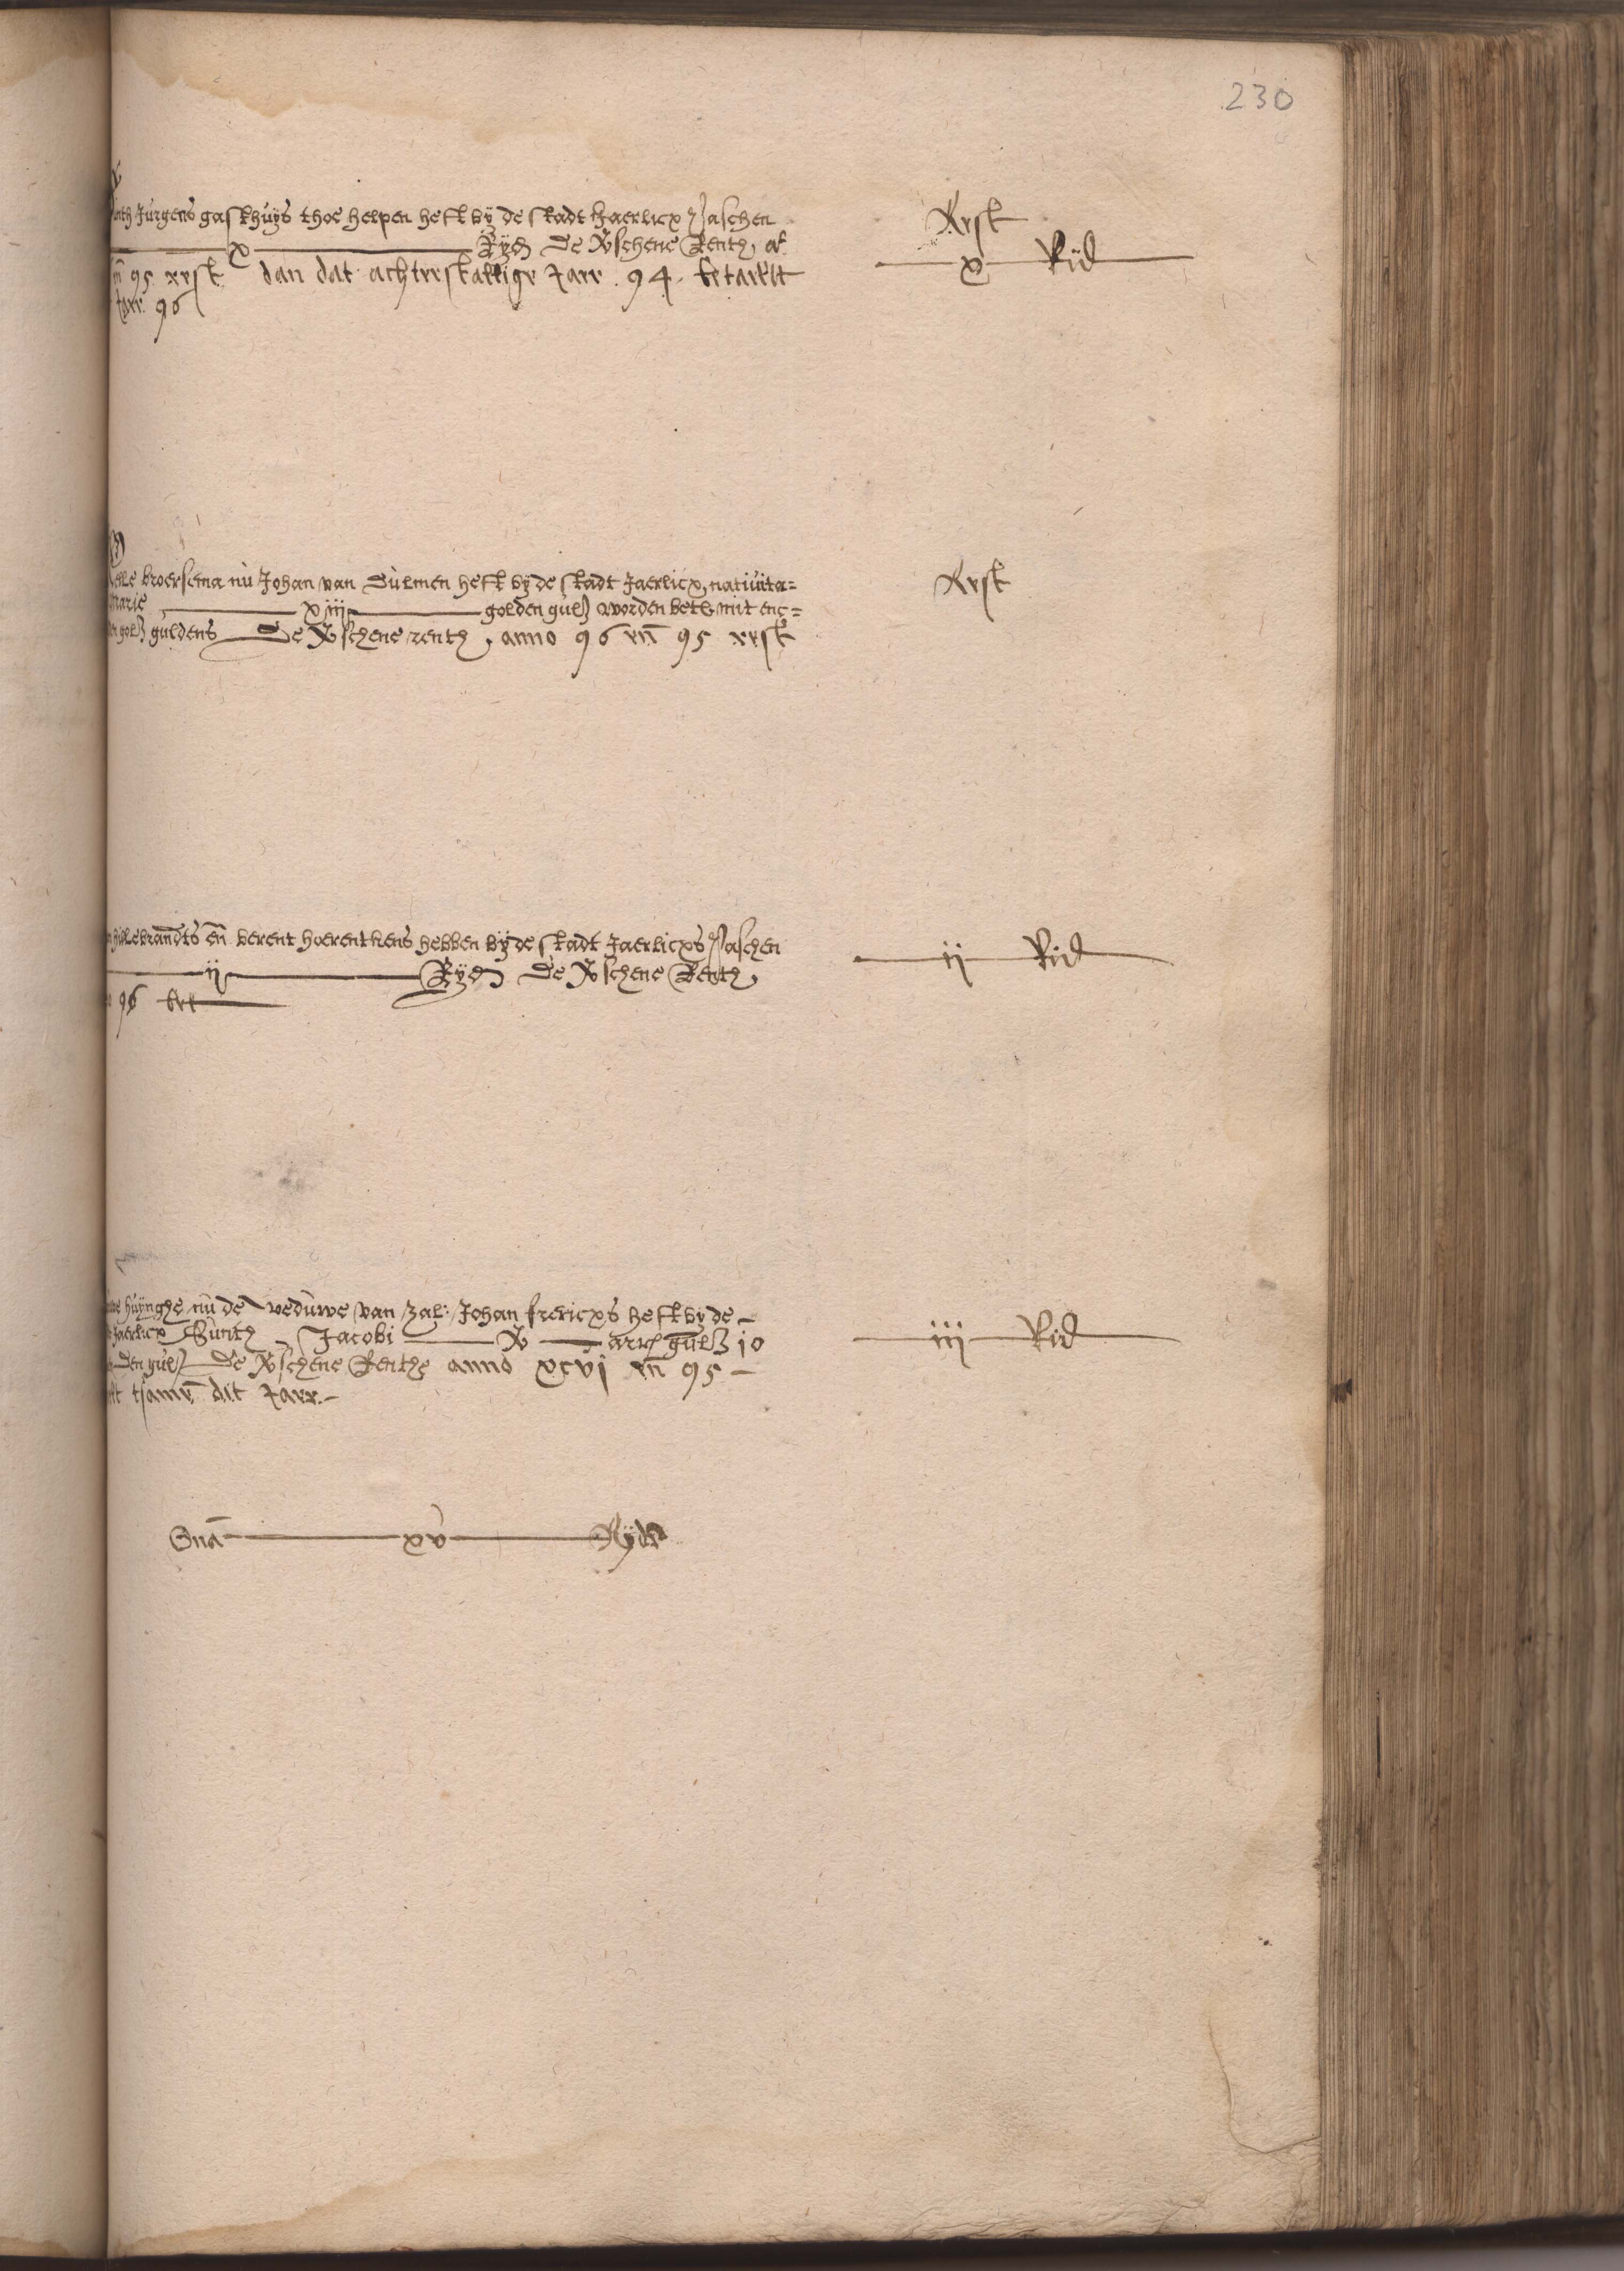 230
Jurgens gasthuys thoe helpen heft by de stadt Jaerlicx Paschen
x Ryd De Vschene Renth, at
95 rest dan dat achterstallige Jaer 94 betaelt
Jaer 96
Rest
x Rid
broersema nu Johan van Dulmen heft by de stadt Jaerlicx, nativita=
Marie xiiij golden guld worden betelt mit enc=
gold guldens De Vschene renth, anno 96 en 95 rest
Rest
hillebrandts en berent hoerenkens hebben by de stadt Jaerlicxs Paschen
ij Ryd De Vschene Renth
96 bet
ij Rid
huynghe nu de weduwe van zal: Johan frericxs heft by de
Jaerlicx Sunth Jacobi v guld 10
den guld De Vschene Renthe anno xcvj en 95
tsamen dit Jaer
iij Rid
Sma xv Ryder